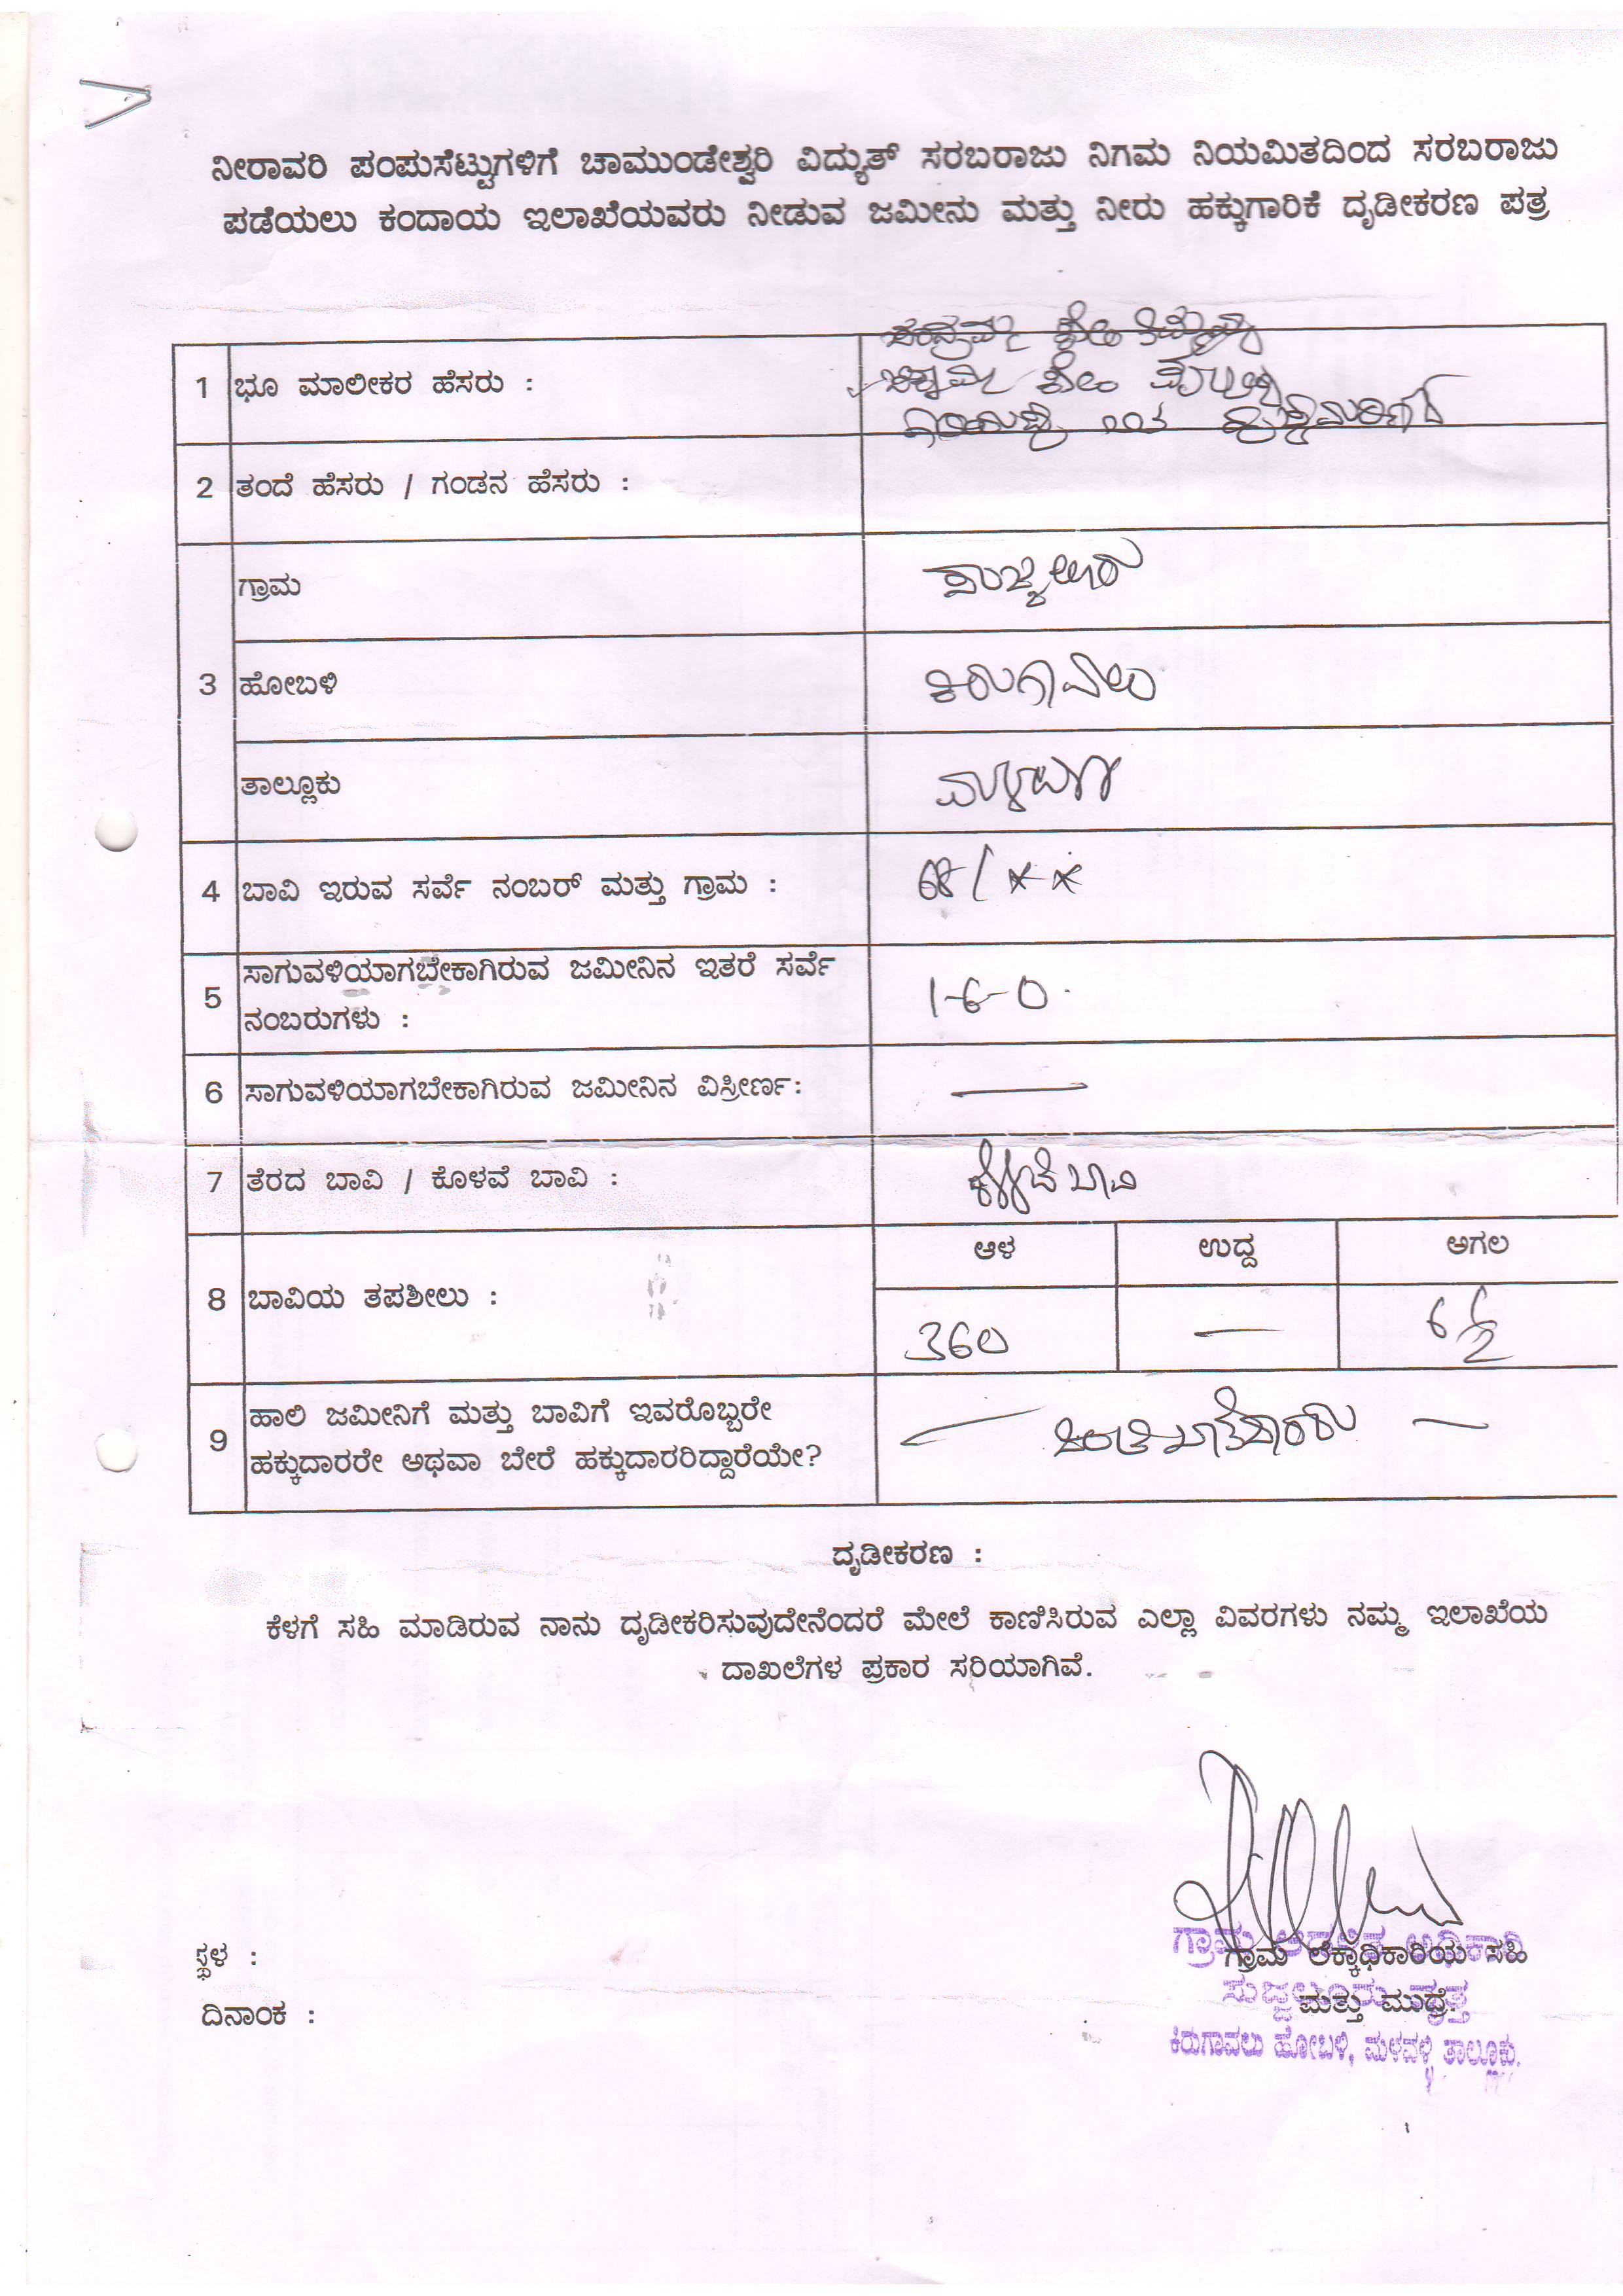 ನೀರಾವರಿ ಪಂಪುಸೆಟ್ಟುಗಳಿಗೆ ಚಾಮುಂಡೇಶ್ವರಿ ವಿದ್ಯುತ್ ಸರಬರಾಜು ನಿಗಮ ನಿಯಮಿತದಿಂದ ಸರಬರಾಜು
ಪಡೆಯಲು ಕಂದಾಯ ಇಲಾಖೆಯವರು ನೀಡುವ ಜಮೀನು ಮತ್ತು ನೀರು ಹಕ್ಕುಗಾರಿಕೆ ದೃಡೀಕರಣ ಪತ್ರ
1 ಭೂ ಮಾಲೀಕರ ಹೆಸರು :
2 ತಂದೆ ಹೆಸರು / ಗಂಡನ ಹೆಸರು :
ಗ್ರಾಮ
3 ಹೋಬಳಿ ಕಿರುಗಾವಲು
ತಾಲ್ಲೂಕು ಮಳವಳ್ಳಿ
4 ಬಾವಿ ಇರುವ ಸರ್ವೆ ನಂಬರ್ ಮತ್ತು ಗ್ರಾಮ : 68/
5 ಸಾಗುವಳಿಯಾಗಬೇಕಾಗಿರುವ ಜಮೀನಿನ ಇತರೆ ಸರ್ವೆ
ನಂಬರುಗಳು : 1-6-0
6 ಸಾಗುವಳಿಯಾಗಬೇಕಾಗಿರುವ ಜಮೀನಿನ ವಿಸ್ತೀರ್ಣ:
7 ತೆರದ ಬಾವಿ / ಕೊಳವೆ ಬಾವಿ : ಕೊಳವೆ ಬಾವಿ
ಆಳ ಉದ್ದ ಅಗಲ
8 ಬಾವಿಯ ತಪಶೀಲು :
360 — 6 1/2
9 ಹಾಲಿ ಜಮೀನಿಗೆ ಮತ್ತು ಬಾವಿಗೆ ಇವರೊಬ್ಬರೇ
ಹಕ್ಕುದಾರರೇ ಅಥವಾ ಬೇರೆ ಹಕ್ಕುದಾರರಿದ್ದಾರೆಯೇ? ಜಂಟಿ ಖಾತೆದಾರರು
ದೃಡೀಕರಣ :
ಕೆಳಗೆ ಸಹಿ ಮಾಡಿರುವ ನಾನು ದೃಡೀಕರಿಸುವುದೇನೆಂದರೆ ಮೇಲೆ ಕಾಣಿಸಿರುವ ಎಲ್ಲಾ ವಿವರಗಳು ನಮ್ಮ ಇಲಾಖೆಯ
ದಾಖಲೆಗಳ ಪ್ರಕಾರ ಸರಿಯಾಗಿವೆ.
ಸ್ಥಳ :
ದಿನಾಂಕ :
ಗ್ರಾಮ ಲೆಕ್ಕಾಧಿಕಾರಿಯ ಸಹಿ
ಮತ್ತು ಮುದ್ರೆ.
ಕಿರುಗಾವಲು ಹೋಬಳಿ, ಮಳವಳ್ಳಿ ತಾಲ್ಲೂಕು.